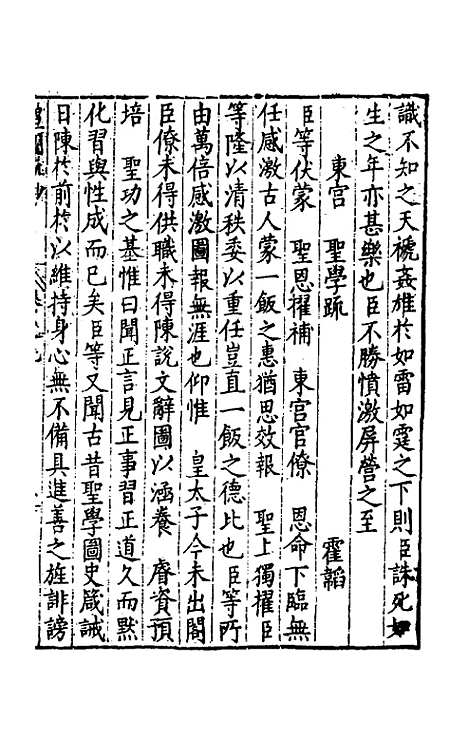 識不知之天褫姦雄於如雷如霆之下則臣誅死如
生之年亦甚樂也臣不勝憤激屏營之至
東宮　聖學疏　霍韜
臣等伏蒙　聖恩擢補　東宮官僚　恩命下臨無
任感激古人蒙一飯之惠猶思效報　聖上獨擢臣
等隆以清秩委以重任豈直一飯之德比也臣等所
由萬倍感激圖報無涯也仰惟　皇太子今未出閤
臣僚未得供職未得陳說文辭圖以涵養　睿資預
培　聖功之基惟曰聞正言見正事習正道久而默
化習與性成而已矣臣等又聞古昔聖學圖史箴誡
日陳於前於以維持身心無不備具進善之旌誹謗